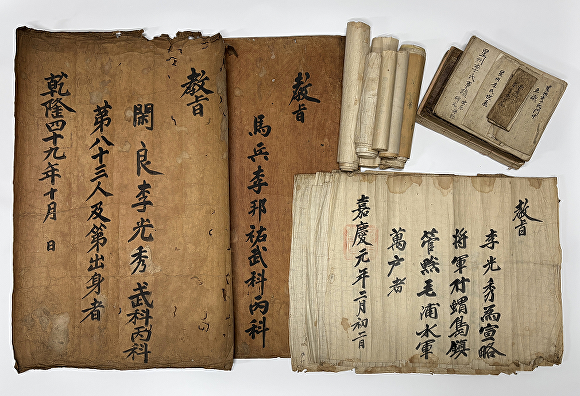 敎旨
閑良李光秀武科丙科
第八十三人及第出身者
乾隆四十九年十月 日
敎旨
馬兵李邦祐武科丙科
敎旨
李光秀爲宣略
將軍行蝟島鎭
管黔毛浦水軍
萬戶者
嘉慶元年二月初一日